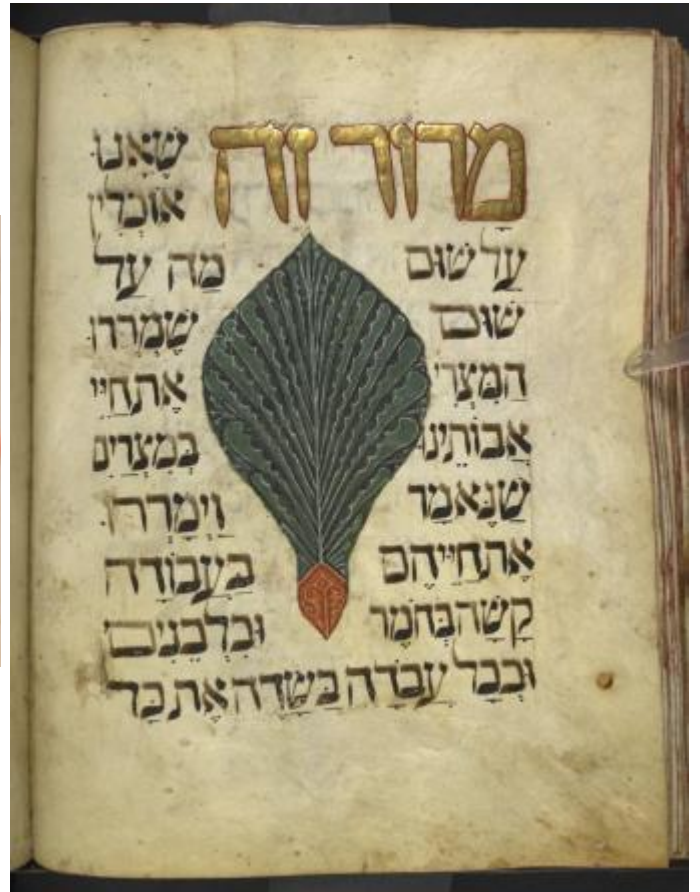 מָרוֹר זֶה שֶׁאָנוּ
אוֹכְלִין
עַל שׁוּם מַה עַל
שׁוּם שֶׁמֵּרְרוּ
הַמִּצְרִי אֶת חַיֵּי
אֲבוֹתֵינוּ בְּמִצְרַיִם
שֶׁנֶּאֱמַר וַיְמָרְרוּ
אֶת חַיֵּיהֶם בַּעֲבוֹדָה
קָשָׁה בְּחֹמֶר וּבִלְבֵנִים
וּבְכָל עֲבֹדָה בַּשָּׂדֶה אֶת כָּל